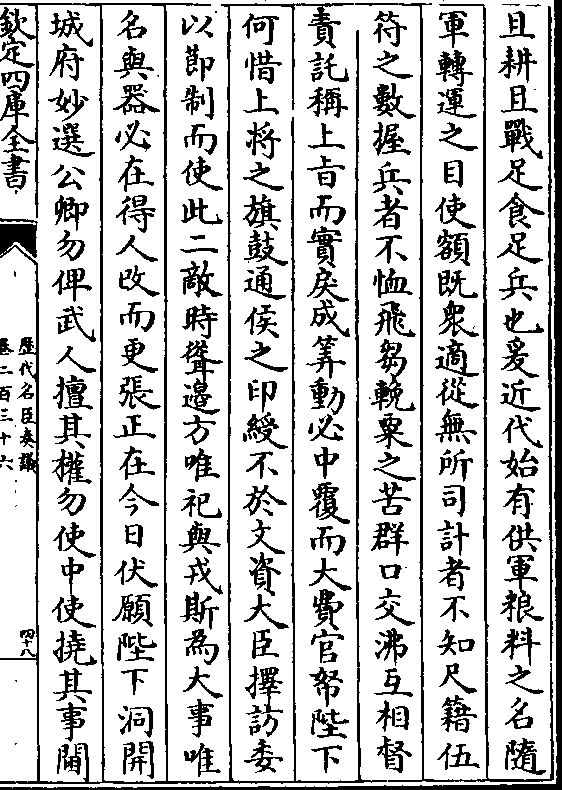 且耕且戰足食足兵也爰近代始有供軍粮料之名隨
軍轉運之目使額既衆適從無所司計者不知尺籍伍
符之數握兵者不恤飛芻輓粟之苦群口交沸互相督
責託稱上旨而實戾成筭動必中覆而大費官帑陛下
何惜上將之旗鼓通侯之印綬不於文資大臣擇訪委
以節制而使此二敵時聳邉方唯祀與戎斯為大事唯
名與器必在得人改而更張正在今日伏願陛下洞開
城府妙選公卿勿俾武人擅其權勿使中使撓其事閫
欽定四庫全書
歴代名臣奏議
卷二百三十六
四十八